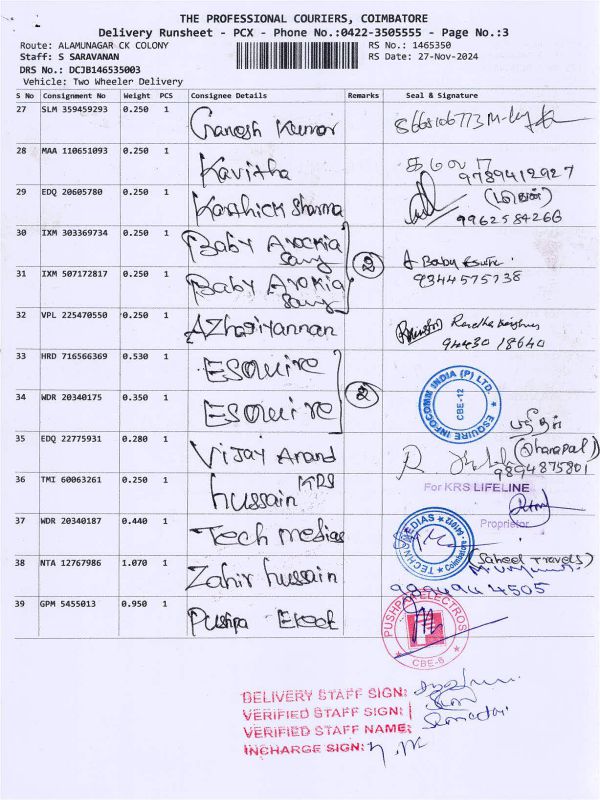 THE PROFESSIONAL COURIERS, COIMBATORE
Delivery Runsheet - PCX - Phone No.:0422-3505555 - Page No.:3
Route: ALAMUNAGAR CK COLONY
RS No.: 1465350
Staff: S SARAVANAN
RS Date: 27-Nov-2024
DRS No.: DCJB146535003
Vehicle: Two Wheeler Delivery
S No Consignment No Weight PCS Consignee Details Remarks Seal & Signature
27 SLM 359459293 0.250 1 Ganesh Kumar
28 MAA 110651093 0.250 1 Kavitha 9789412927
29 EDQ 20605780 0.250 1 Karthick Sharma 9962584266
30 IXM 303369734 0.250 1 Baby Arockia
31 IXM 507172817 0.250 1 Baby Arokia 2 Baby 9344575738
32 VPL 225470550 0.250 1 Azhagiyannan 94430 18640
33 HRD 716566369 0.530 1 Esquire
34 WDR 20340175 0.350 1 Esquire 2 ESQUIRE INFOCOMM INDIA (P) LTD. CBE-12
35 EDQ 22775931 0.280 1 Vijay Anand 9894875801
36 TMI 60063261 0.250 1 Hussain KRS
For KRS LIFELINE
Proprietor
37 WDR 20340187 0.440 1 Tech medias TECHNOMEDIAS Coimbatore
38 NTA 12767986 1.070 1 Zahir Hussain (Saheel Travels)
39 GPM 5455013 0.950 1 Pushpa PUSHPA ELECTROS CBE-6
DELIVERY STAFF SIGN:
VERIFIED STAFF SIGN:
VERIFIED STAFF NAME:
INCHARGE SIGN: